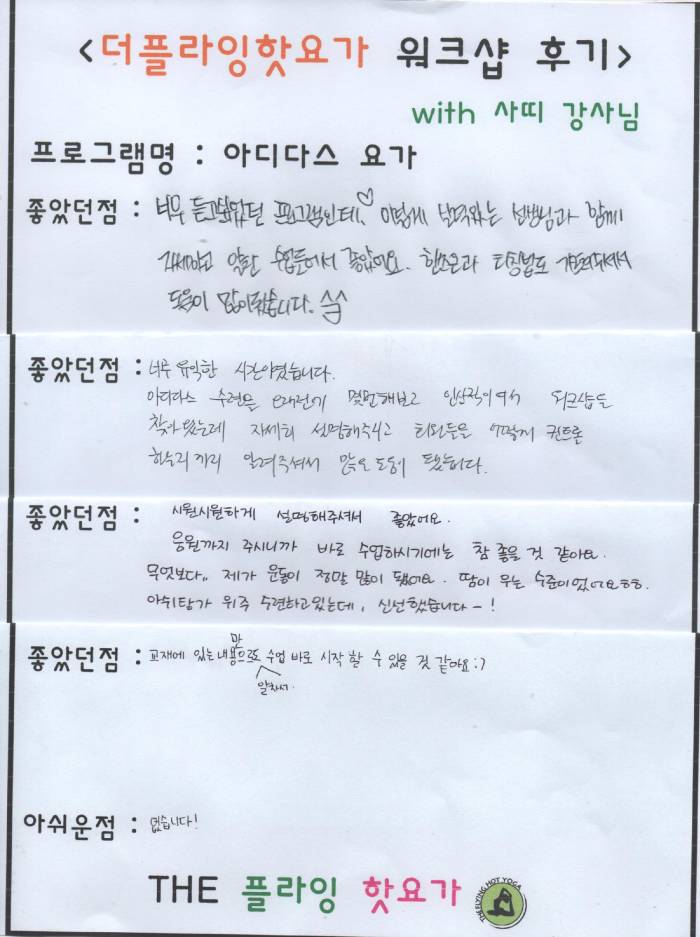 <더플라잉핫요가 워크샵 후기>
with 사띠 강사님
프로그램명 : 아디다스 요가
좋았던점 : 너무 듣고싶었던 프로그램인데♡ 이렇게 선생님과 함께
수업들어서 좋았어요. 핸즈온과 티칭법도
도움이 많이됐습니다.
좋았던점 : 너무 유익한 시간이였습니다.
아디다스 수련은 예전에 몇번해보고 인상적이여서 워크샵을
찾아왔는데 자세히 설명해주시고 회원들을 어떻게 컨트롤
하는지까지 알려주셔서 많은 도움이 됐습니다.
좋았던점 : 시원시원하게 설명해주셔서 좋았어요.
음원까지 주시니까 바로 수업하시기에는 참 좋을 것 같아요.
무엇보다.. 제가 운동이 정말 많이 됐어요. 땀이 우는 수준이었어요ㅎㅎ.
아쉬탕가 위주 수련하고있는데, 신선했습니다~!
좋았던점 : 교재에 있는 내용만으로도 알차서 수업 바로 시작 할 수 있을 것 같아요 :)
아쉬운점 : 없습니다!
THE 플라잉 핫요가
THE FLYING HOT YOGA